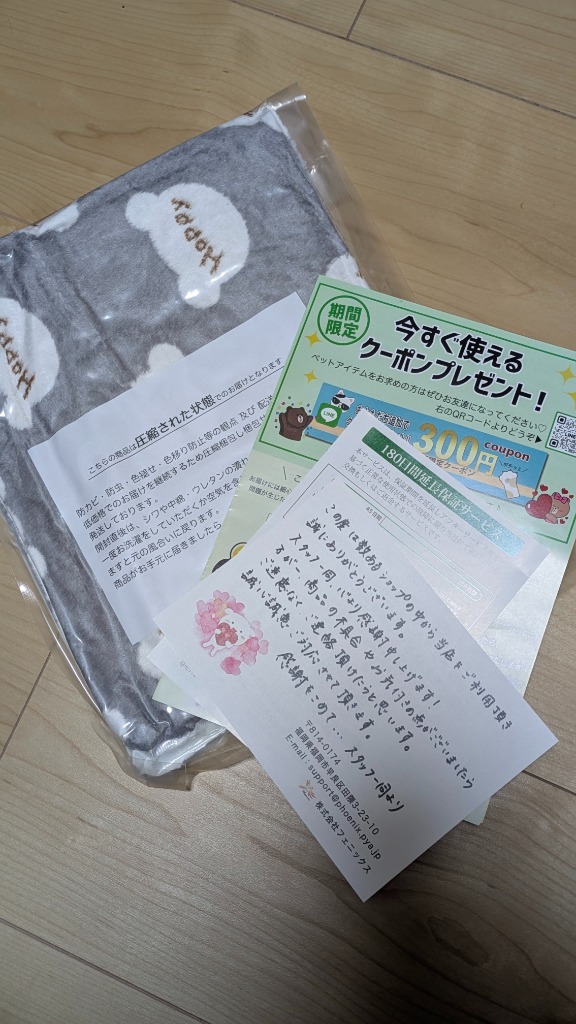 Happy
Happy
こちらの商品は圧縮された状態でのお届けとなります
防カビ・防虫・色褪せ・色移り防止等の観点 及び 配送
低価格でのお届けを継続するため圧縮梱包し梱包サ
発送しております。
開封直後は、シワや中綿・ウレタンの潰れ
一度お洗濯をしていただくか空気を含
ますと元の風合いに戻ります。
商品がお手元に届きましたら
期間
限定
今すぐ使える
クーポンプレゼント!
ペットアイテムをお求めの方はぜひお友達になってください♡
右のQRコードよりどうぞ▶
LINE
300円
coupon
クーポン
180日間延長保証サービス
この度は数あるショップの中から当店をご利用頂き
誠にありがとうございます。
スタッフ一同、心より感謝申し上げます!
万が一、商品の不具合やお気付きの点がございましたら
ご遠慮なくご連絡頂けたらと思います。
誠心誠意ご対応させて頂きます。
感謝をこめて… スタッフ一同より
〒814-0174
福岡県福岡市早良区田隈3-23-10
E-mail : support@phoenix.pya.jp
株式会社フェニックス